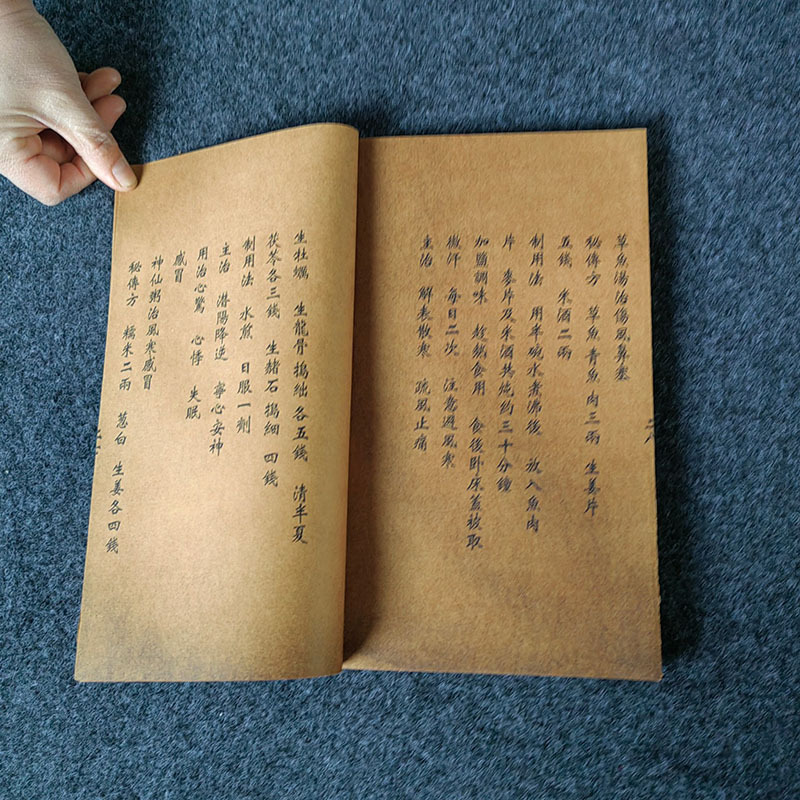 草魚湯治傷風鼻塞
秘傳方 草魚青魚肉三兩 生姜片
五錢 米酒二兩
制用法 用半碗水煮沸後 放入魚肉
片 姜片及米酒共炖約三十分鐘
加鹽調味 趁熱食用 食後卧床蓋被取
微汗 每日二次 注意避風寒
主治 解表散寒 疏風止痛
生牡蠣 生龍骨搗絀各五錢 清半夏
茯苓各三錢 生赭石搗細 四錢
制用法 水煎 日服一劑
主治 潜陽降逆 寧心安神
用治心驚 心悸 失眠
感冒
神仙粥治風寒感冒
秘傳方 糯米二兩 葱白 生姜各四錢